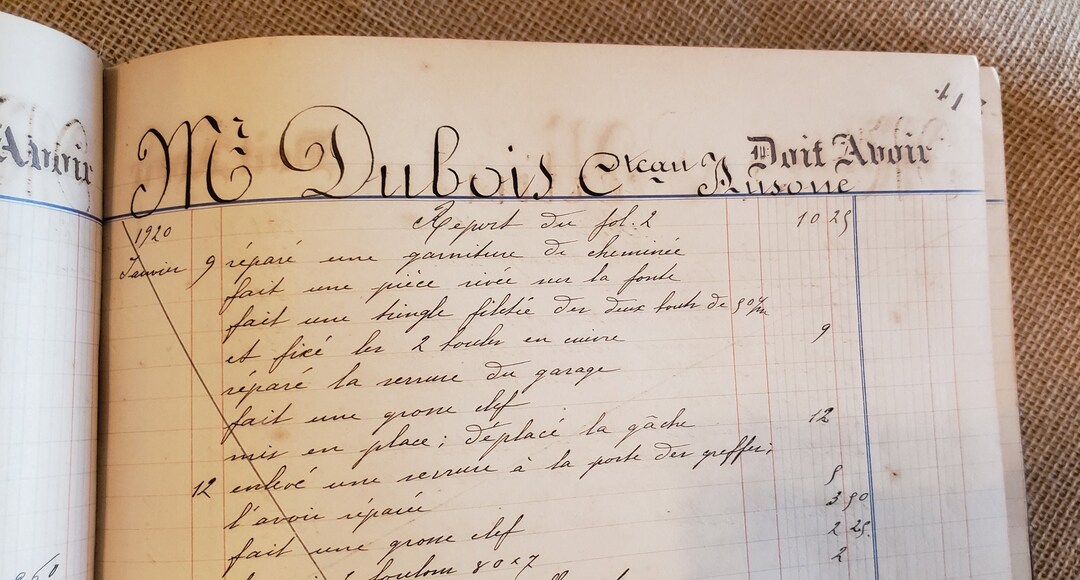 Avoir
11
Mr Dubois Cteau J. Ausone Doit Avoir
1920 Report du fol. 2 10 25
Janvier 9 réparé une garniture de cheminée
fait une pièce rivée sur la fonte
fait une tringle filetée des deux bouts de 50 c/m
et fixé les 2 boules en cuivre 9
réparé la serrure du garage
fait une grosse clef
mis en place; déplacé la gâche 12
12 enlevé une serrure à la porte des greffes;
l'avoir réparée 5
fait une grosse clef 3 50
boulons 80 x 7 2 25
2